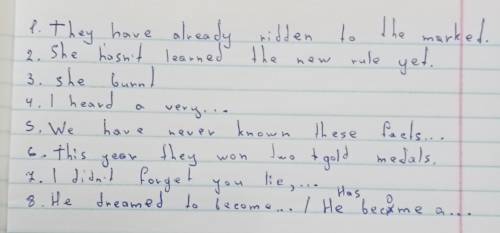 1. They have already ridden to the marked.
2. She hasn't learned the new rule yet.
3. she burnt
4. I heard a very...
5. We have never known these facts...
6. This year they won two gold medals.
7. I didn't forget you lie,...
Has
8. He dreamed to become... / He become a...